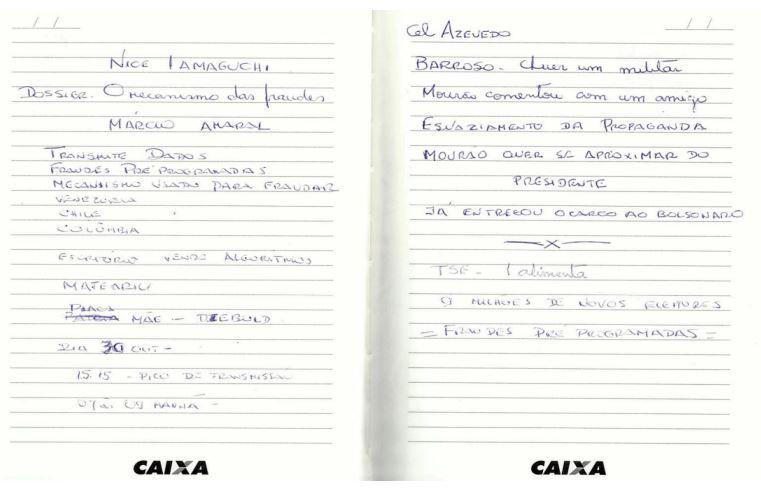 / /
NICE IAMAGUCHI
DOSSIER. O mecanismo das fraudes
MÁRCIO AMARAL
TRANSMITE DADOS
FRAUDES PRÉ PROGRAMADAS
MECANISMO USADO PARA FRAUDAR
VENEZUELA
CHILE
COLÔMBIA
ESCRITÓRIO VENDE ALGORÍTMOS
PLACA
MÃE - DIEBOLD
DIA 30 OUT -
15.15 - PICO DE TRANSMISSÃO
09 MANHÃ -
CAIXA
/ /
Cel AZEVEDO
BARROSO - Quer um militar
Mourão comentou com um amigo
ESVAZIAMENTO DA PROPAGANDA
MOURÃO QUER SE APROXIMAR DO
PRESIDENTE
JÁ ENTREGOU O CARGO AO BOLSONARO
X
TSE - alimenta
9 MILHÕES DE NOVOS ELEITORES
= FRAUDES PRÉ PROGRAMADAS =
CAIXA